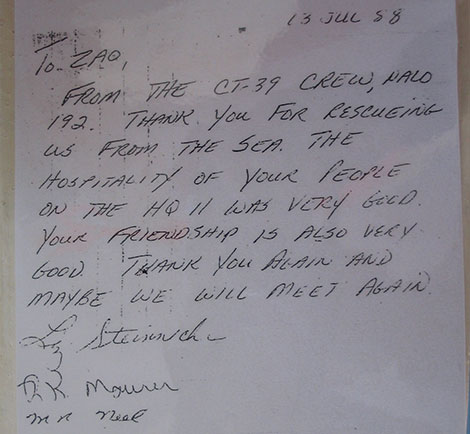 13 JUL 88
To ZAO,
FROM THE CT-39 CREW, NALO
192. THANK YOU FOR RESCUEING
US FROM THE SEA. THE
HOSPITALITY OF YOUR PEOPLE
ON THE HQ 11 WAS VERY GOOD.
YOUR FRIENDSHIP IS ALSO VERY
GOOD. THANK YOU AGAIN AND
MAYBE WE WILL MEET AGAIN.
Maurer
M R Neal